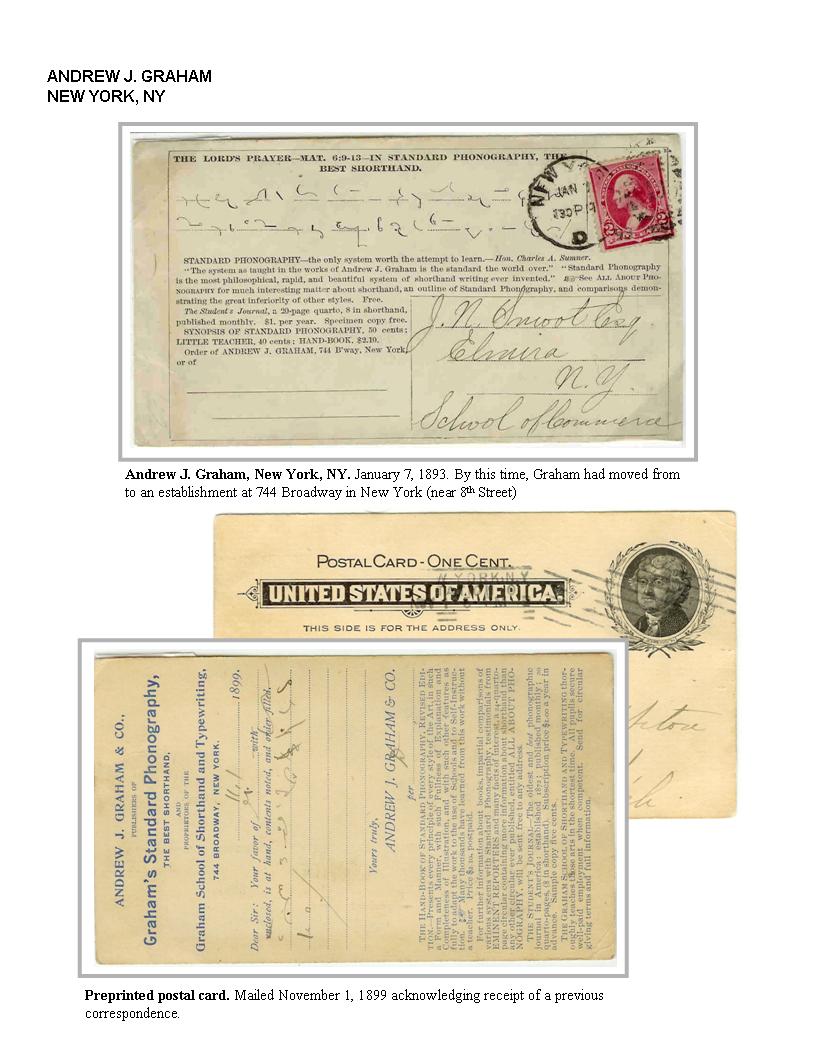 ANDREW J. GRAHAM
NEW YORK, NY
THE LORD'S PRAYER—MAT. 6:9-13—IN STANDARD PHONOGRAPHY, THE
BEST SHORTHAND.
NEW Y
JAN 7
130 P
D
93
2 2
STANDARD PHONOGRAPHY—the only system worth the attempt to learn.—Hon. Charles A. Sumner.
"The system as taught in the works of Andrew J. Graham is the standard the world over." "Standard Phonography
is the most philosophical, rapid, and beautiful system of shorthand writing ever invented." ☞See ALL ABOUT PHO-
NOGRAPHY for much interesting matter about shorthand, an outline of Standard Phonography, and comparisons demon-
strating the great inferiority of other styles. Free.
The Student's Journal, a 20-page quarto, 8 in shorthand,
published monthly. $1. per year. Specimen copy free.
SYNOPSIS OF STANDARD PHONOGRAPHY, 50 cents;
LITTLE TEACHER, 40 cents; HAND-BOOK, $2.10.
Order of ANDREW J. GRAHAM, 744 B'way, New York,
or of
J. N. Smoot Esq
Elmira
N. Y.
School of Commerce
Andrew J. Graham, New York, NY. January 7, 1893. By this time, Graham had moved from
to an establishment at 744 Broadway in New York (near 8th Street)
POSTAL CARD - ONE CENT.
N.YORK,N.Y
UNITED STATES OF AMERICA.
THIS SIDE IS FOR THE ADDRESS ONLY.
ANDREW J. GRAHAM & CO.,
PUBLISHERS OF
Graham's Standard Phonography,
THE BEST SHORTHAND.
AND
PROPRIETORS OF THE
Graham School of Shorthand and Typewriting,
744 BROADWAY, NEW YORK.
11/1 1899.
Dear Sir: Your favor of with
enclosed, is at hand, contents noted, and order filled.
Yours truly,
ANDREW J. GRAHAM & CO.
per
THE HAND-BOOK OF STANDARD PHONOGRAPHY, REVISED EDI-
TION.—Presents every principle of every style of the Art, in such
a Form and Manner, with such Fullness of Explanation and
Completeness of Illustration, and with such other features as
fully to adapt the work to the use of Schools and to Self-Instruc-
tion. ☞ Many thousands have learned from this work without
a teacher. Price postpaid.
For further information about books, impartial comparisons of
various systems with Standard Phonography, testimonials from
EMINENT REPORTERS and many facts of interest, a 24-quarto-
page circular containing more information about shorthand than
any other circular ever published, entitled ALL ABOUT PHO-
NOGRAPHY, will be sent free to any address.
THE STUDENT'S JOURNAL—The oldest and best phonographic
journal in America; established 1872; published monthly; 20
quarto-pages, (8 in shorthand). Subscription price $1.00 a year in
advance. Sample copy five cents.
THE GRAHAM SCHOOL OF SHORTHAND AND TYPEWRITING thor-
oughly teaches these arts in the shortest time. All pupils secure
well-paid employment when competent. Send for circular
giving terms and full information.
Preprinted postal card. Mailed November 1, 1899 acknowledging receipt of a previous
correspondence.